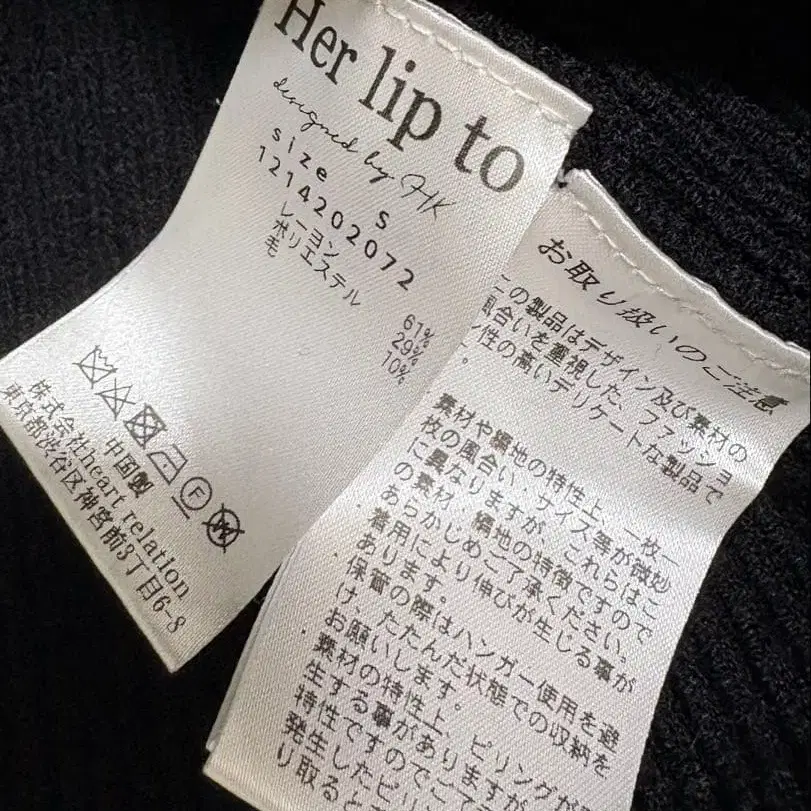 Her lip to
designed by HK
size S
1214202072
レーヨン 61%
ポリエステル 29%
毛 10%
F
W
中国製
株式会社heart relation
東京都渋谷区神宮前3丁目6-8
お取り扱いのご注意
この製品はデザイン及び素材の
風合いを重視した、ファッショ
ン性の高いデリケートな製品で
。
素材や編地の特性上、一枚一
枚の風合い・サイズ等が微妙
に異なりますが、これらはこ
の素材・編地の特徴ですので
あらかじめご了承ください。
・着用により伸びが生じる事が
あります。
・保管の際はハンガー使用を避
け、たたんだ状態での収納を
お願いします。
・素材の特性上、ピリングが
生する事がありますが
特性ですのでご了
発生したピリン
り取ると